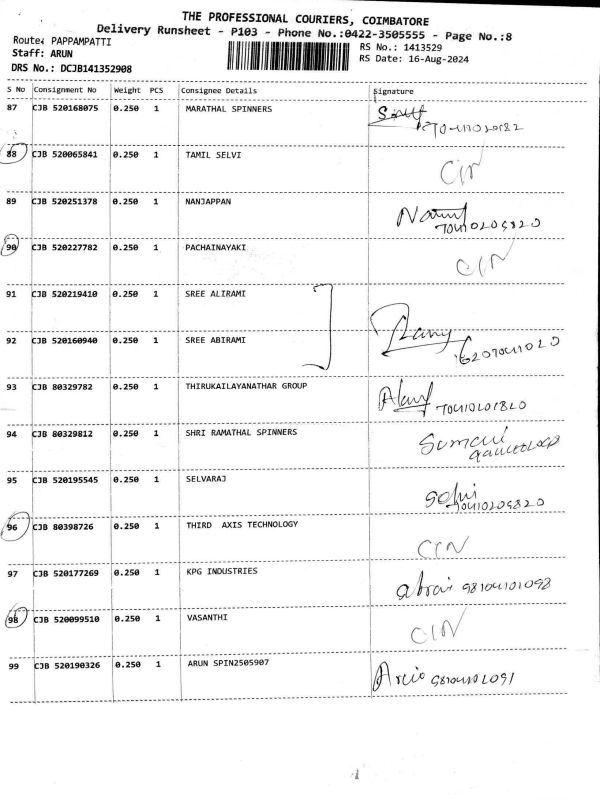 THE PROFESSIONAL COURIERS, COIMBATORE
Delivery Runsheet - P103 - Phone No.:0422-3505555 - Page No.:8
Route: PAPPAMPATTI
RS No.: 1413529
Staff: ARUN
RS Date: 16-Aug-2024
DRS No.: DCJB141352908
S No Consignment No Weight PCS Consignee Details Signature
87 CJB 520168075 0.250 1 MARATHAL SPINNERS
88 CJB 520065841 0.250 1 TAMIL SELVI CIN
89 CJB 520251378 0.250 1 NANJAPPAN
90 CJB 520227782 0.250 1 PACHAINAYAKI CIN
91 CJB 520219410 0.250 1 SREE ALIRAMI
92 CJB 520160940 0.250 1 SREE ABIRAMI
93 CJB 80329782 0.250 1 THIRUKAILAYANATHAR GROUP
94 CJB 80329812 0.250 1 SHRI RAMATHAL SPINNERS
95 CJB 520195545 0.250 1 SELVARAJ
96 CJB 80398726 0.250 1 THIRD AXIS TECHNOLOGY CIN
97 CJB 520177269 0.250 1 KPG INDUSTRIES
98 CJB 520099510 0.250 1 VASANTHI CIN
99 CJB 520190326 0.250 1 ARUN SPIN2505907